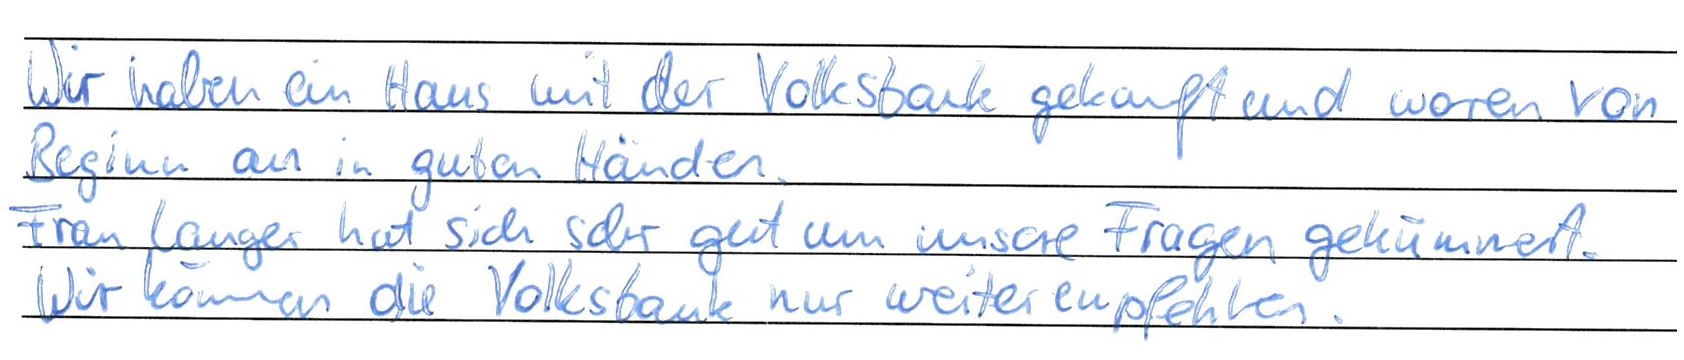 Wir haben ein Haus mit der Volksbank gekauft und waren von
Beginn an in guten Händen.
Frau Langer hat sich sehr gut um unsere Fragen gekümmert.
Wir können die Volksbank nur weiterempfehlen.